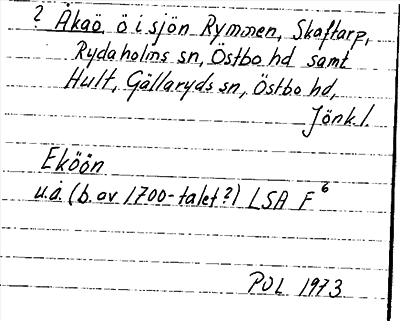 ? Åkaö, ö i sjön Rymmen, Skaftarp,
Rydaholms sn, Östbo hd samt
Hult, Gällaryds sn, Östbo hd,
Jönk.l.
Eköön
u.å. (b. av 1700-talet?) LSA F⁶
PUL 1973